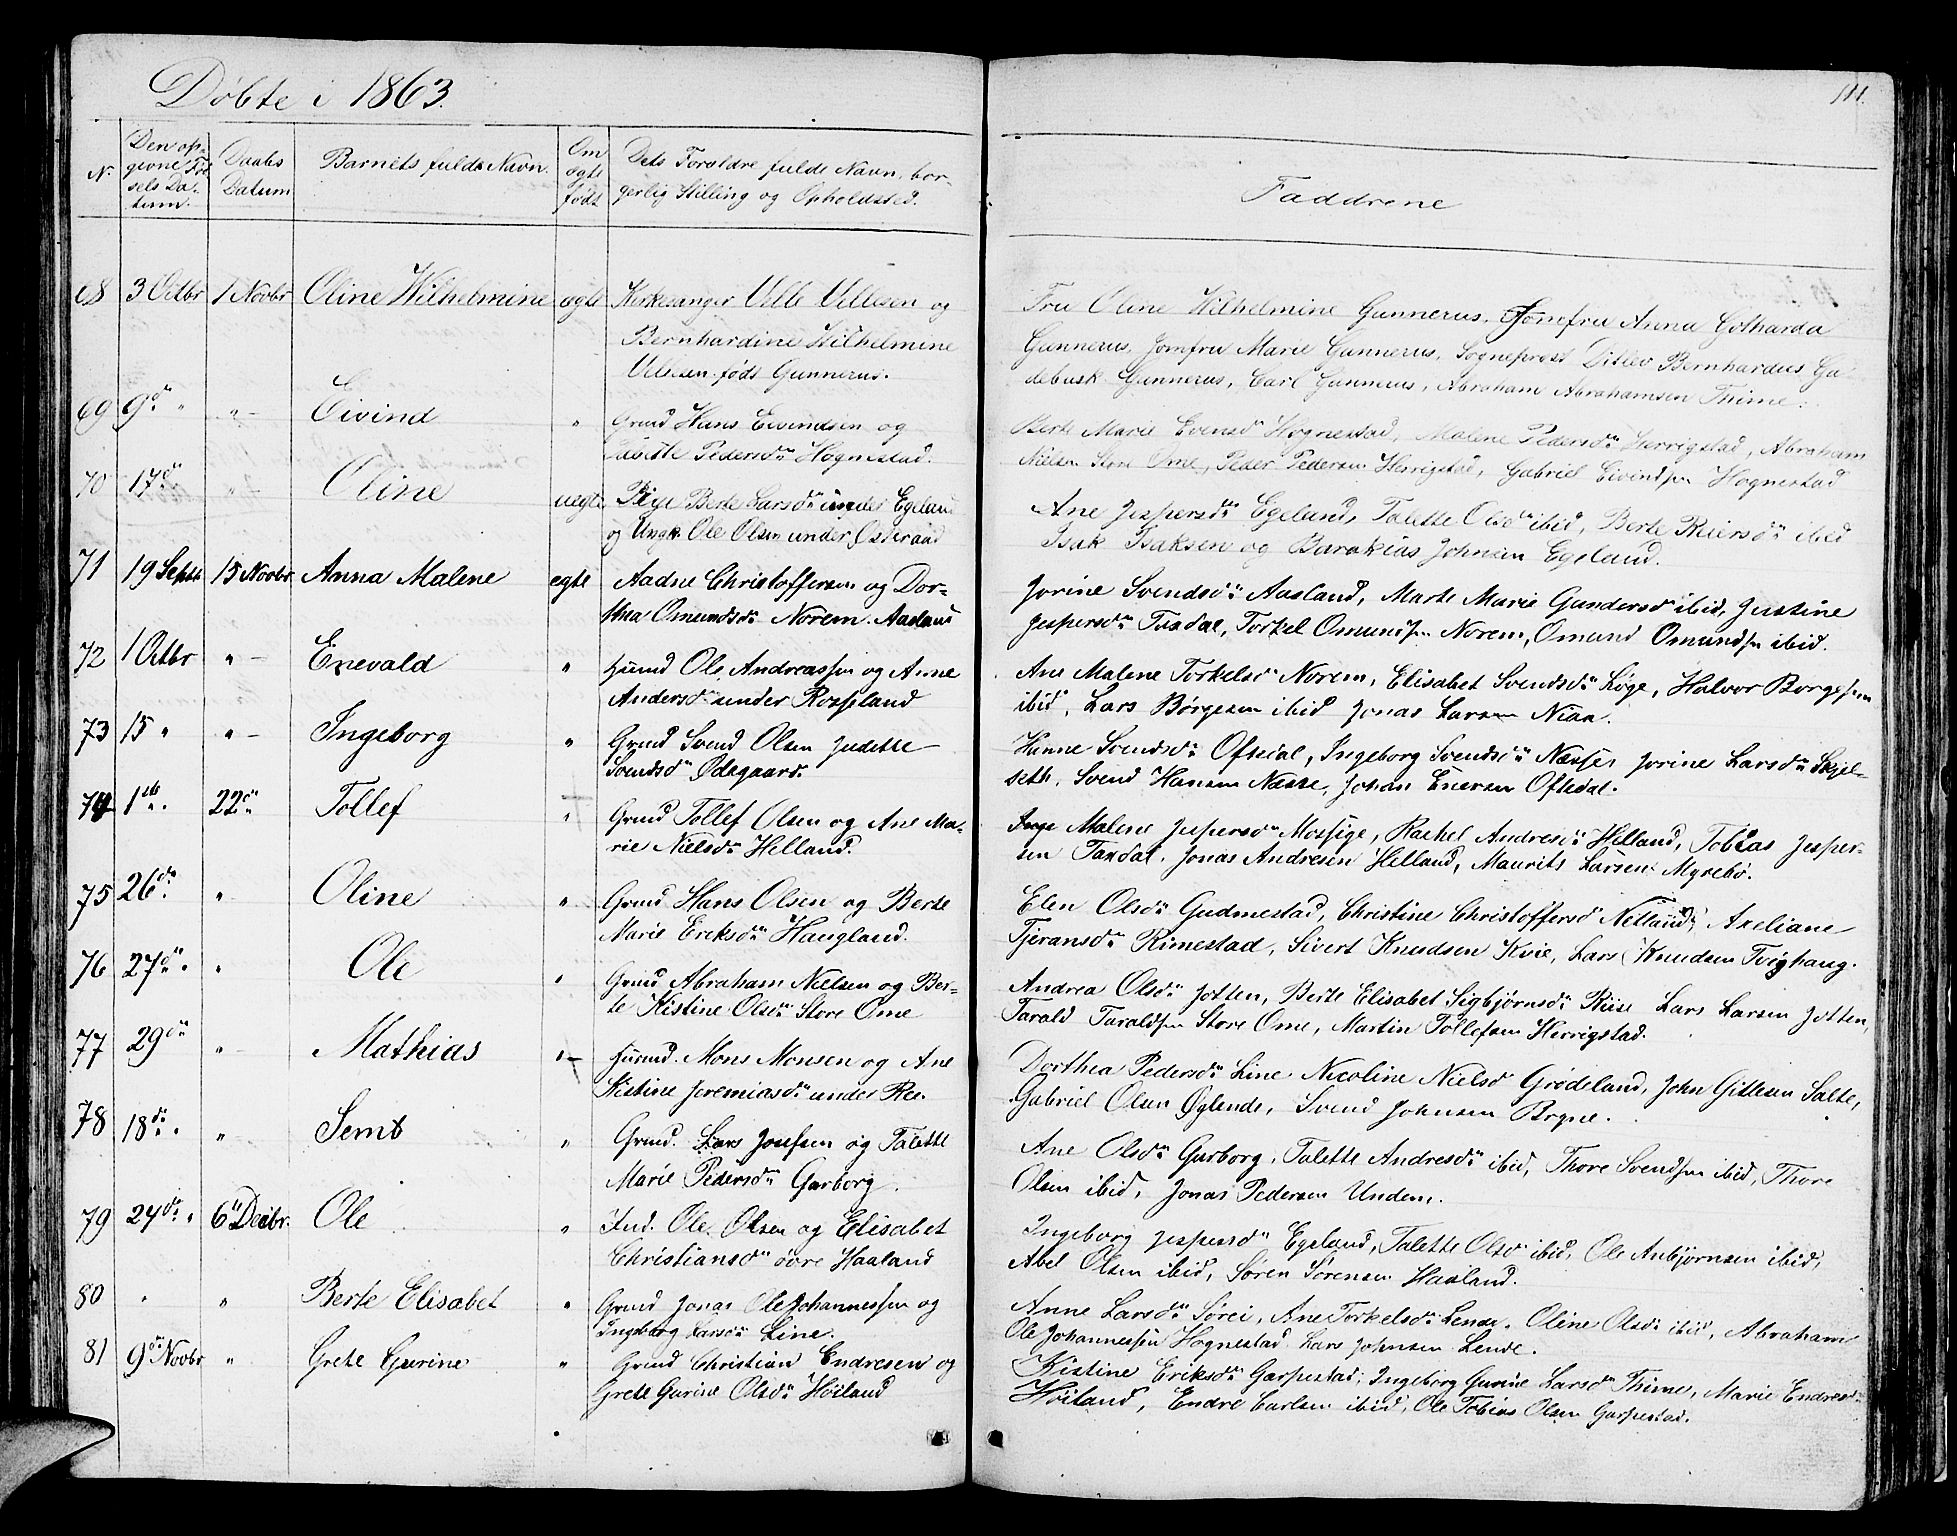 Döbte i 1863.
111.
N.
Den op-
givne Fö
sels Da-
tum.
Daabs
Datum
Barnets fulde Navn.
Om
ægte
födt
Dets Forældre fulde Navn, bor-
gerlig Stilling og Opholdsted.
Faddrene
68 3 Octbr 1 Novbr Oline Wilhelmine ægte Kirkesanger Ulle Ullesen og
Bernhardine Wilhelmine
Ullesen födt Gunnerus.
Fru Oline Wilhelmine Gunnerus, Jomfru Anna Gotharda
Gunnerus, Jomfru Marie Gunnerus, Sogneprost Ditlev Bernhardus Ga-
debusk Gunnerus, Carl Gunnerus, Abraham Abrahamsen Thime.
69 9d " " - Eivind " Grmd Hans Eivindsen og
Pedersdn Hognestad.
Berte Marie Evensd Hognestad, Malene Pedersdn Herrigstad, Abraham
Nielsen Store Ome, Peder Pedersen Herrigstad, Gabriel Eivindsen Hognestad
70 17d " - Oline uegte Pige Berte Larsdn under Egeland
og Ungk. Ole Olsen under Österaad
Ane Jespersdn Egeland, Talette Olsdn ibid, Berte Reiersdn ibid
Isak Isaksen og Barakias Johnsen Egeland.
71 19 Septb 15 Novbr Anna Malene egte Aadne Christoffersen og Dor-
thea Omundsdn Norem. Aasland
Jorine Svendsdn Aasland, Marte Marie Gundersd ibid, Justine
Jespersdn Taxdal, Torkel Omundsen Norem, Omund Omundsen ibid.
72 1 Octbr " - Enevald " Husmd Ole Andreassen og Anne
Andersdn under Rosseland
Ane Malene Torkelsd Norem, Elisabet Svendsdn Löge, Halvor Borgesen
ibid, Lars Börgesen ibid Jonas Larsen Niaa.
73 15 " " - Ingeborg " Grmd Svend Olsen Judette
Svendsdn Ödegaard.
Hanne Svendsdn Oftedal, Ingeborg Svendsdn Næsse, Jorine Larsdn Skjel-
seth, Svend Hansen Næsse, Johan Enersen Oftedal.
74 1ste " 22dn Tollef " Grmd Tollef Olsen og Ane Ma-
rie Nielsdn Helland.
Malene Jespersdn Mossige, Rachel Andresdn Helland, Tobias Jesper-
sen Taxdal, Jonas Andresen Helland, Maurits Larsen Myrebö.
75 26dn " Oline " Grmd Hans Olsen og Berte
Marie Eriksdn Haugland.
Elen Olsdn Gudmestad, Christine Christoffersd Netland, Axeliane
Tjeransdn Rimestad, Sivert Knudsen Kvie, Lars Knudsen Tvihaug.
76 27dn " " Ole " Grmd Abraham Nielsen og Ber-
te Kistine Olsdn Store Ome
Andrea Olsdn Jotten, Berte Elisabet Sigbjörnsdn Riise Lars Larsen Jotten,
Tarald Taraldsen Store Ome, Martin Tollefsen Herrigstad.
77 29dn " Mathias " Husmd. Mons Monsen og Ane
Kistine Jeremiasdn under Ree.
Dorthea Pedersdn Line Nicoline Nielsd Grödeland, John Gittesen Salte,
Gabriel Olsen Öglende, Svend Johnsen Bryne.
78 18dn " " Semb " Grmd. Lars Josefsen og Talette
Marie Pedersdn Garborg.
Ane Olsdn Garborg, Talette Andresdn ibid, Thore Svendsen ibid, Thore
Olsen ibid, Jonas Pedersen Undem.
79 24dn " 6 Decbr. Ole " Ind. Ole Olsen og Elisabet
Christiansdn övre Haaland
Ingeborg Jespersdn Egeland, Talette Olsd ibid, Ole Anbjörnsen ibid,
Abel Olsen ibid, Sören Sörensen Haaland.
80 " " Berte Elisabet " Grmd Jonas Ole Johannessen og
Ingborg Larsdn Line.
Anne Larsdn Sörei, Ane Torkelsdn Lende, Oline Olsdn ibid, Abraham
Ole Johannessen Hognestad Lars Johnsen Lende.
81 9dn Novbr " Grete Gurine " Grmd Christian Endresen og
Grete Gurine Olsdn Höiland
Kistine Eriksdn Garpestad, Ingeborg Gurine Larsdn Thime, Marie Endresd
Höiland, Endre Carlsen ibid, Ole Tobias Olsen Garpestad.